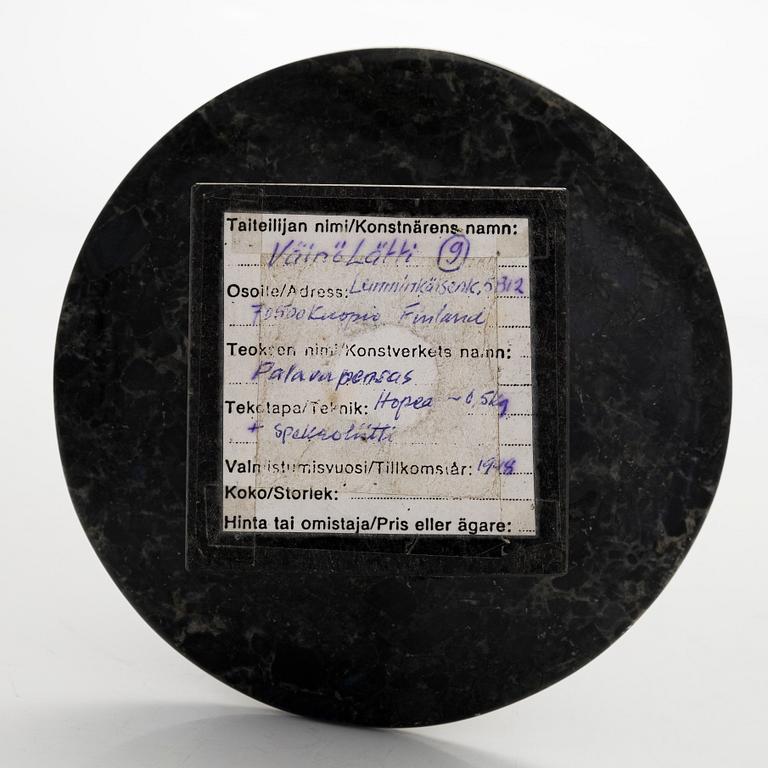 Taiteilijan nimi/Konstnärens namn:
Väinö Lätti 9
Osoite/Adress: Lemminkäisenk. 5 B12
70500 Kuopio Finland
Teoksen nimi/Konstverkets namn:
Palava pensas
Tekotapa/Teknik: Hopea ~0,5kg
+
Valmistumisvuosi/Tillkomstår:
Koko/Storlek:
Hinta tai omistaja/Pris eller ägare: